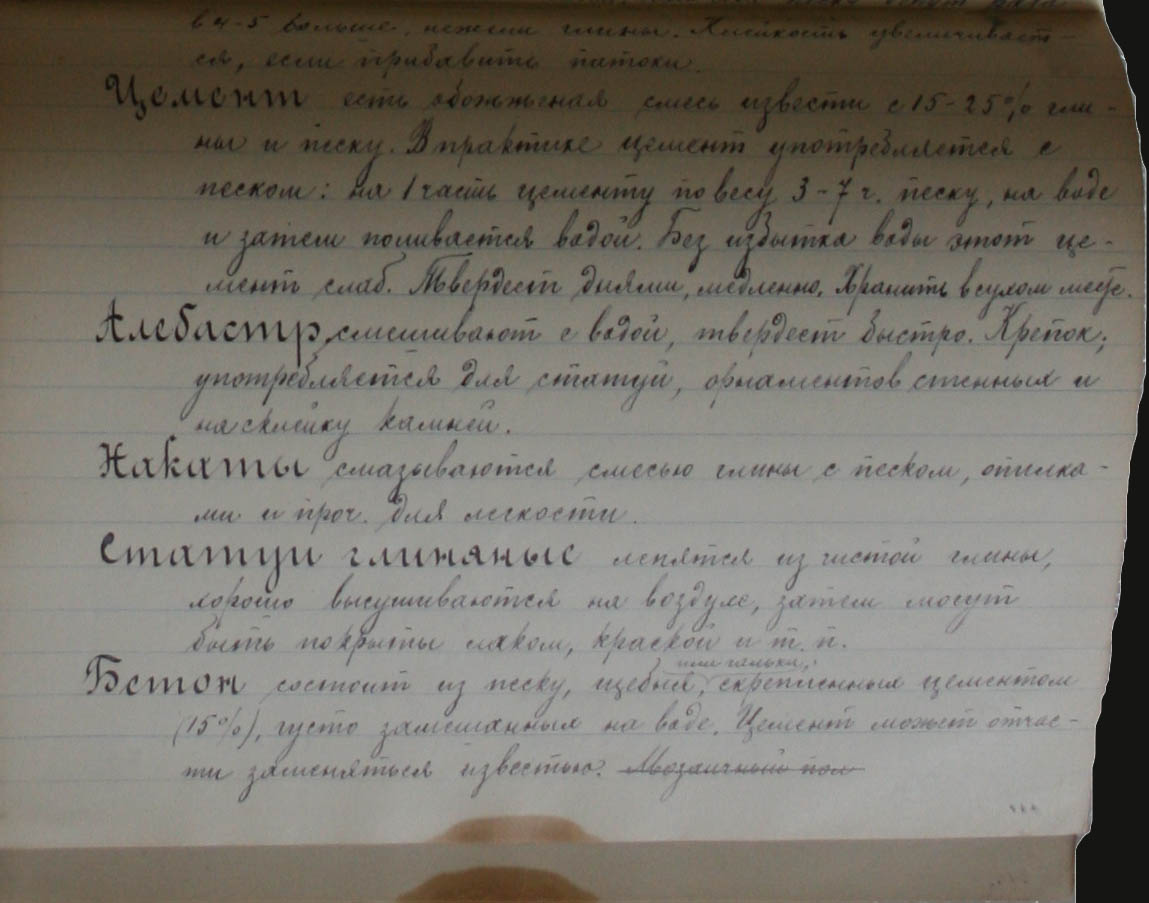 в 4-5 больше, нежели глины. Клейкость увеличивает-
ся, если прибавить патоки.
Цемент есть обожженая смесь извести с 15-25% гли-
ны и песку. В практике цемент употребляется с
песком: на 1 часть цементу по весу 3-7 ч. песку, на воде
и затем поливается водой. Без избытка воды этот це-
мент слаб. Твердеет днями, медленно. Хранить в сухом месте.
Алебастр смешивают с водой, твердеет быстро. Крепок;
употребляется для статуй, орнаментов стенных и
на склейку камней.
Накаты смазываются смесью глины с песком, опилка-
ми и проч. для легкости.
Статуи глиняные лепятся из чистой глины,
хорошо высушиваются на воздухе, затем могут
быть покрыты лаком, краской и т. п.
или гальки,
Бетон состоит из песку, щебня, скрепленных цементом
(15%), густо замешанных на воде. Цемент может отчас-
ти заменяться известью. Мозаичный пол